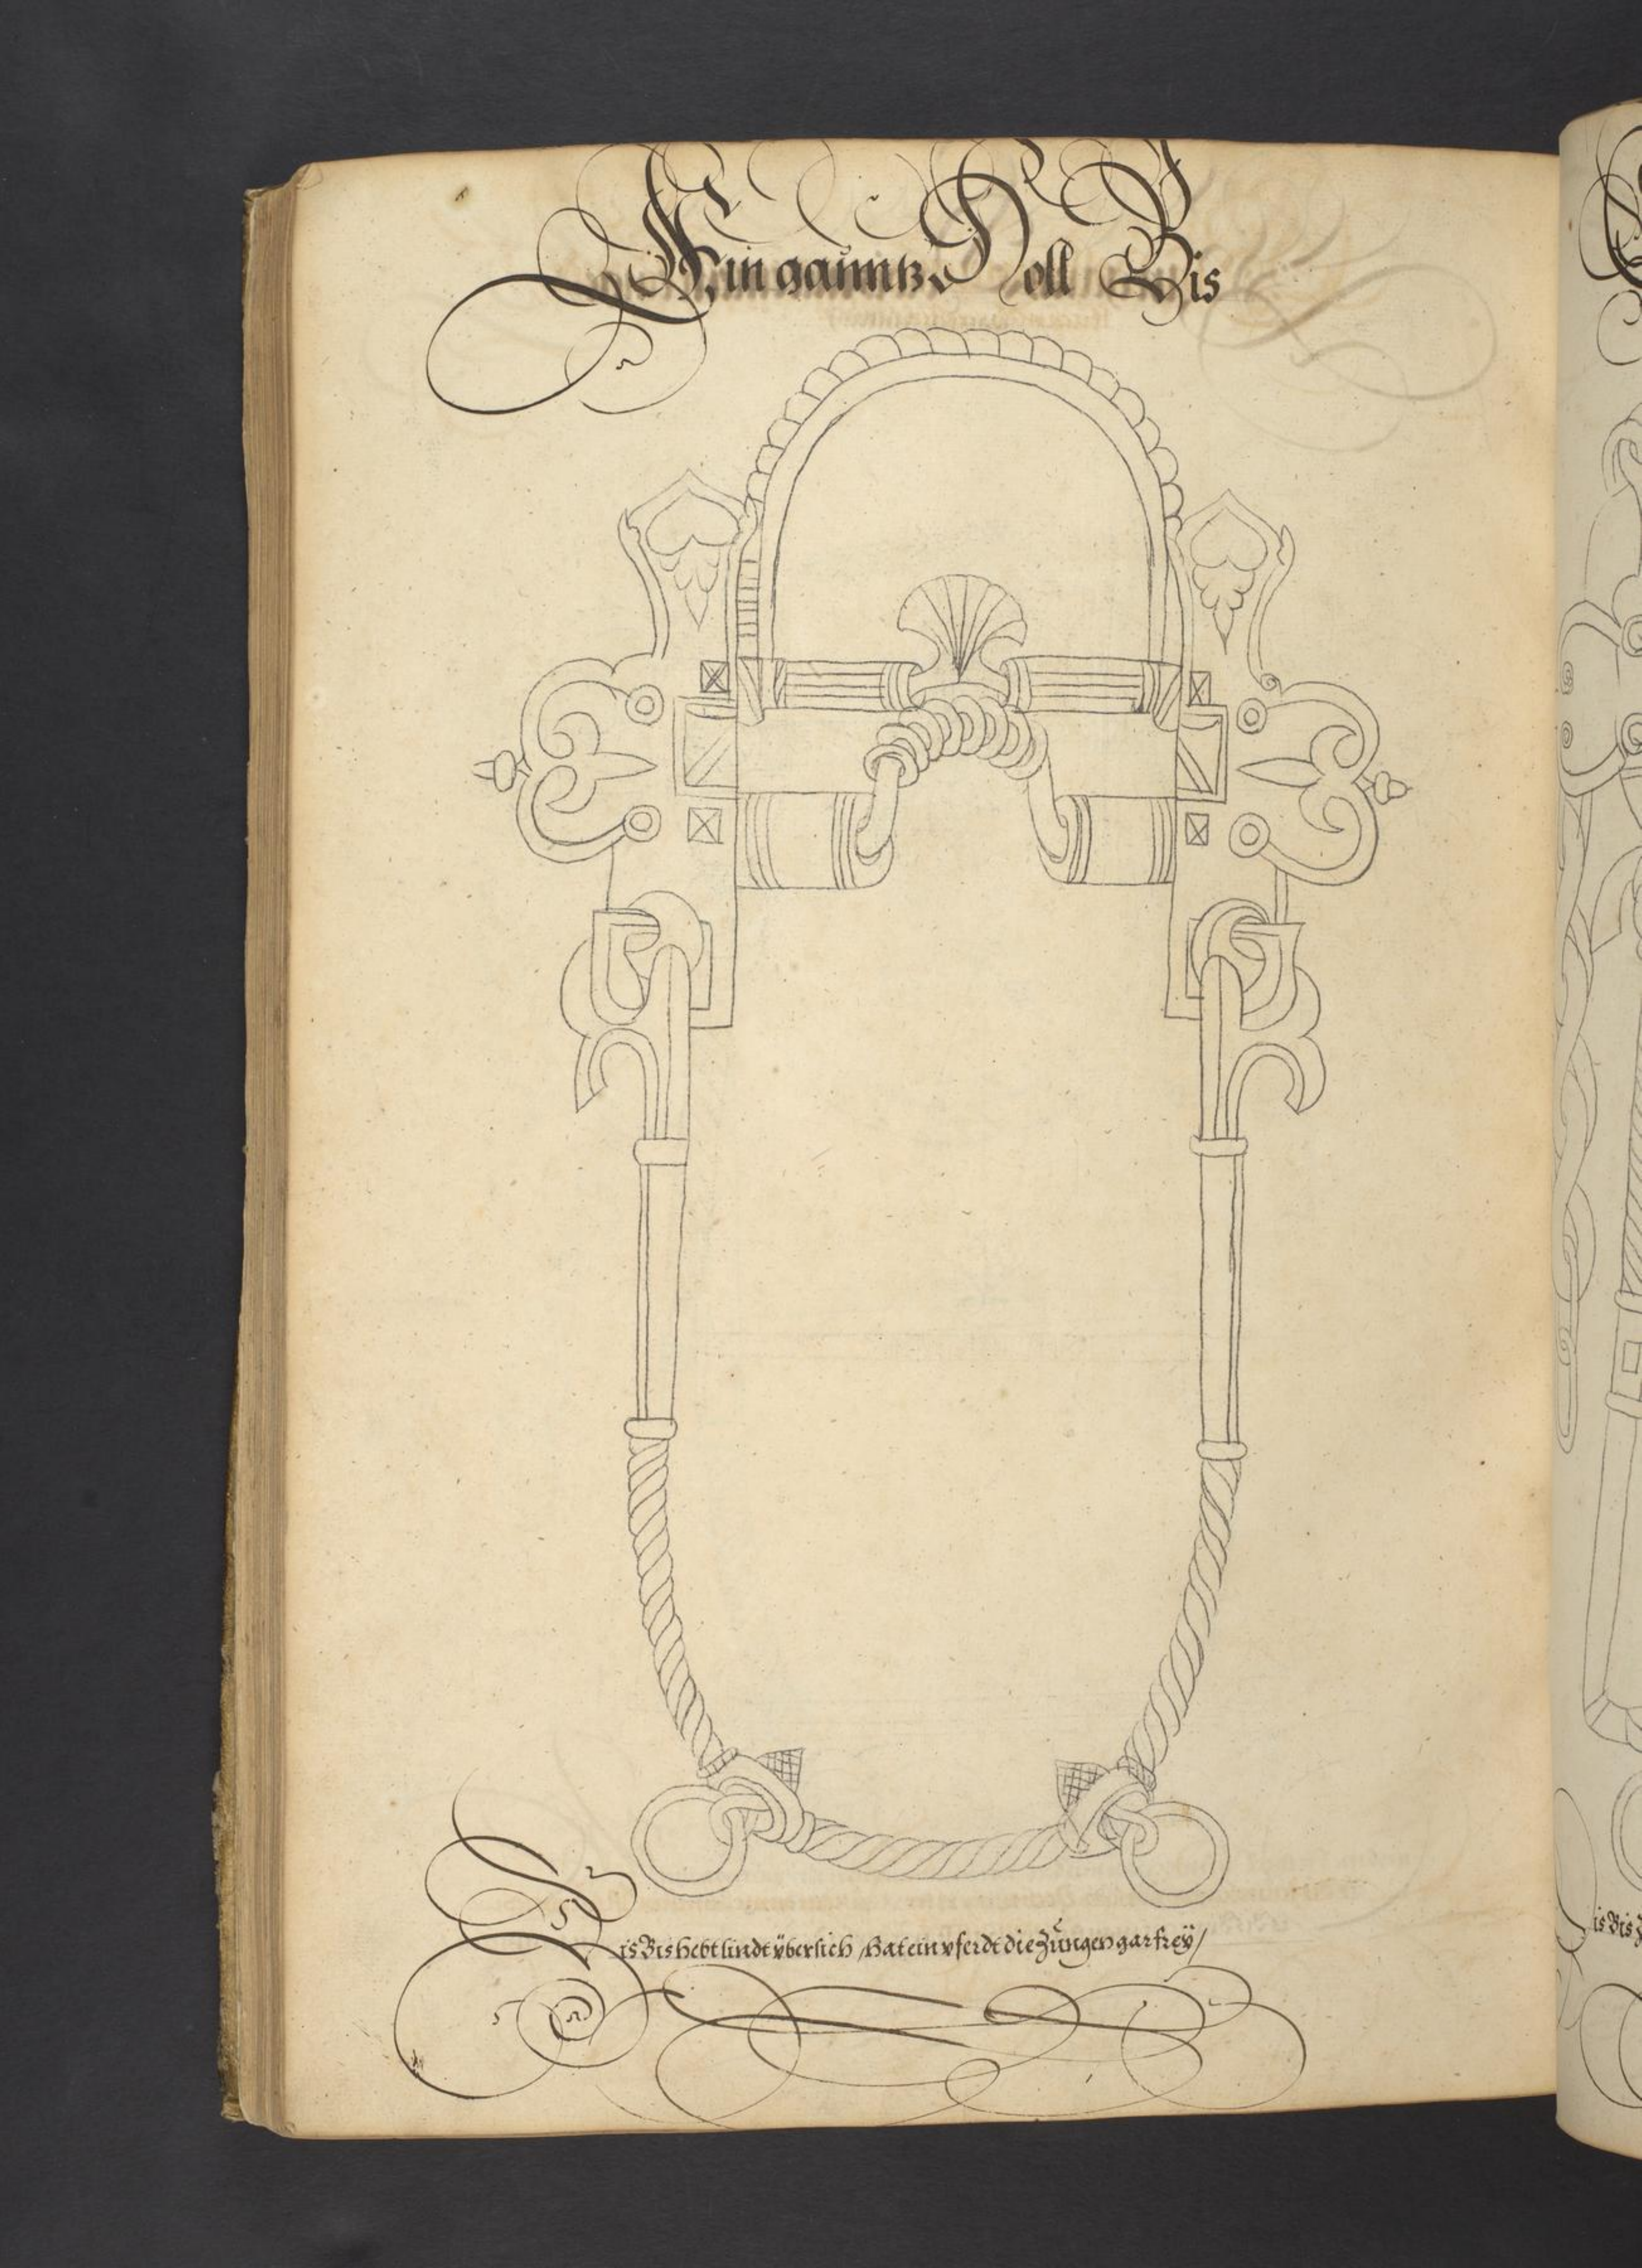 Ein gauntz Holl Bis
Dis Bis hebt lindt übersich / hat ein pferdt die Zungen gar freÿ /
is Bis